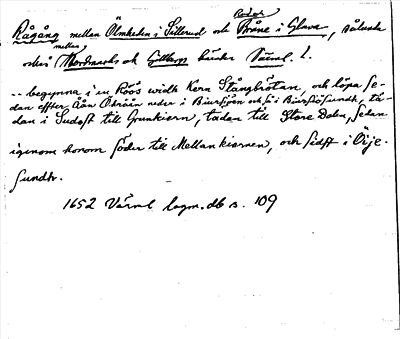 Rågång mellan Ölmheden i Sillerud och Bodga Bråne i Glava, således
också mellan Nordmarks och Gillbergs härader Värml. l.
-- begynna i en Röös widh Kern Stångbrötan, och löpa se-
dan effter Åån Öhråån neder i Biursjöen och så i Biursiösundh, tä-
dan i Sudost till Grunkiern, tädan till Store Dalen, sedan
igenom honom söder till Mellankiernen, och sidst i Öije-
sundh.
1652 Värml lagm. db s. 109